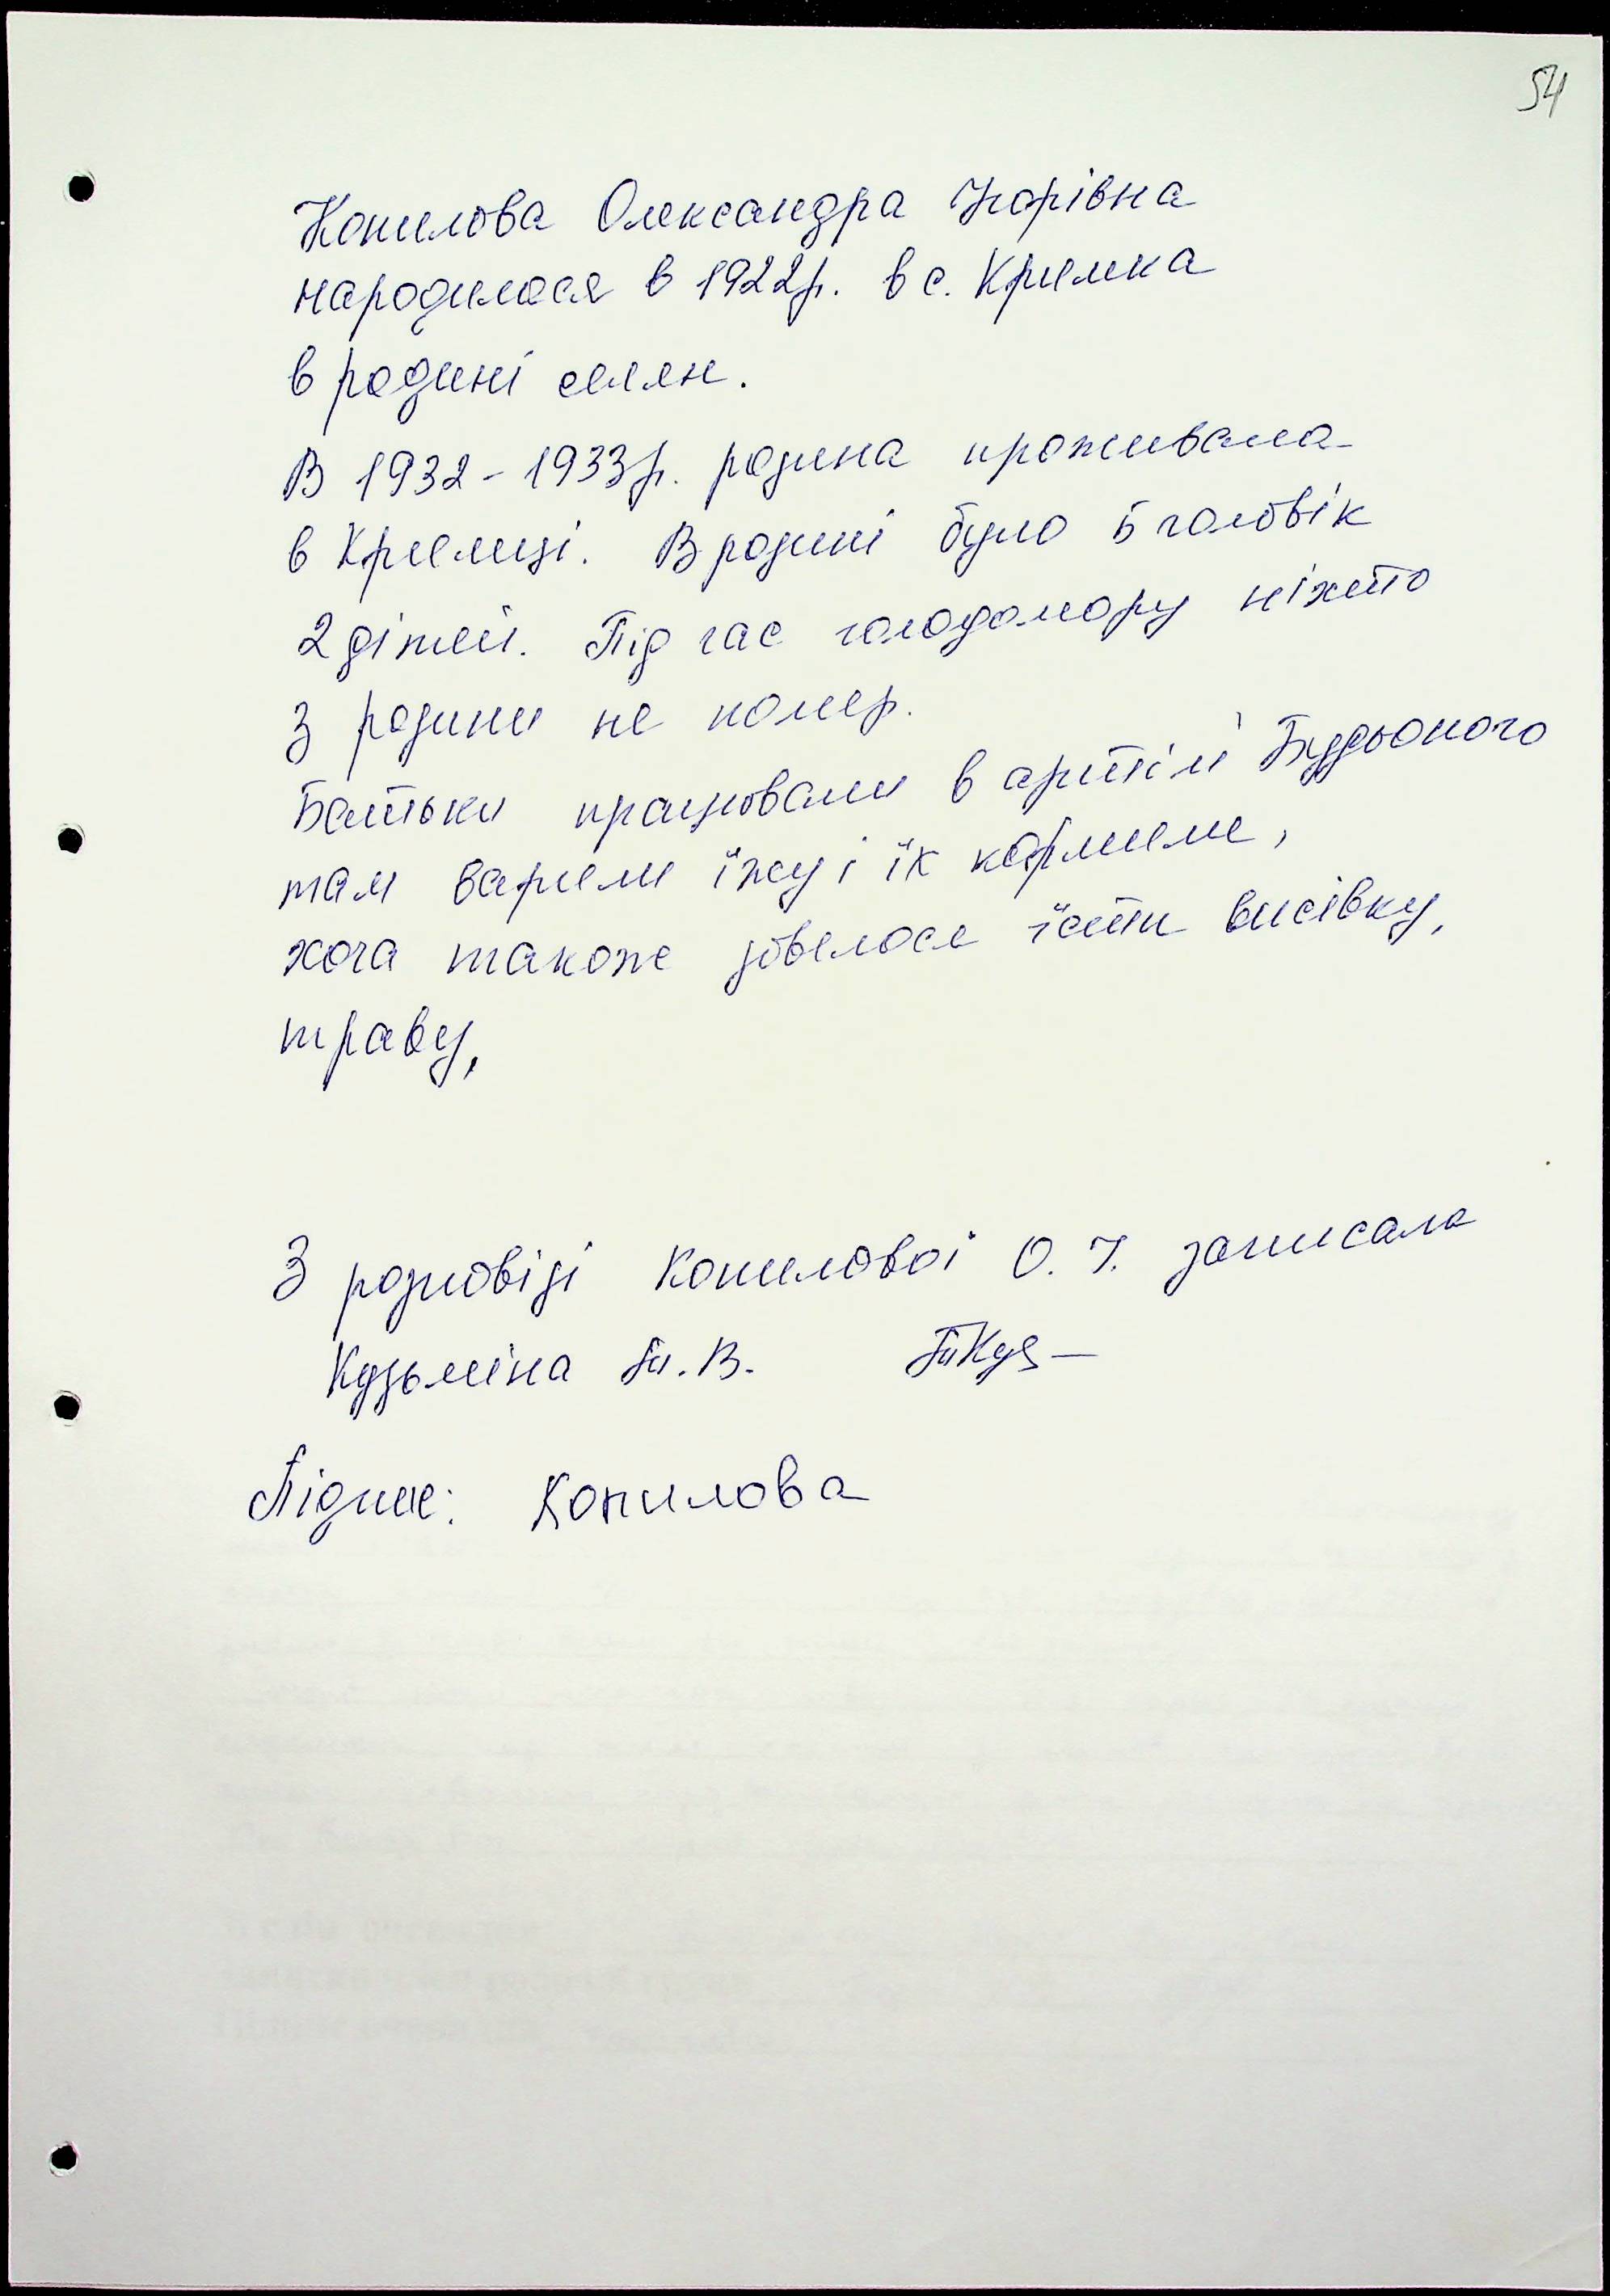 54
Копилова Олександра Ігорівна
народилася в 1922р. в с. Кримка
в родині селян.
В 1932-1933р. родина проживала
в Кримці. В родині було 5 чоловік
2 дітей. Під час голодомору ніхто
з родини не помер.
Батьки працювали в артілі Будьоного
там варили їжу і їх кормили,
хоча також довелося їсти висівку,
траву,
З розповіді Копилової О. І. записала
Кузьміна Т. В.
Підпис: Копилова